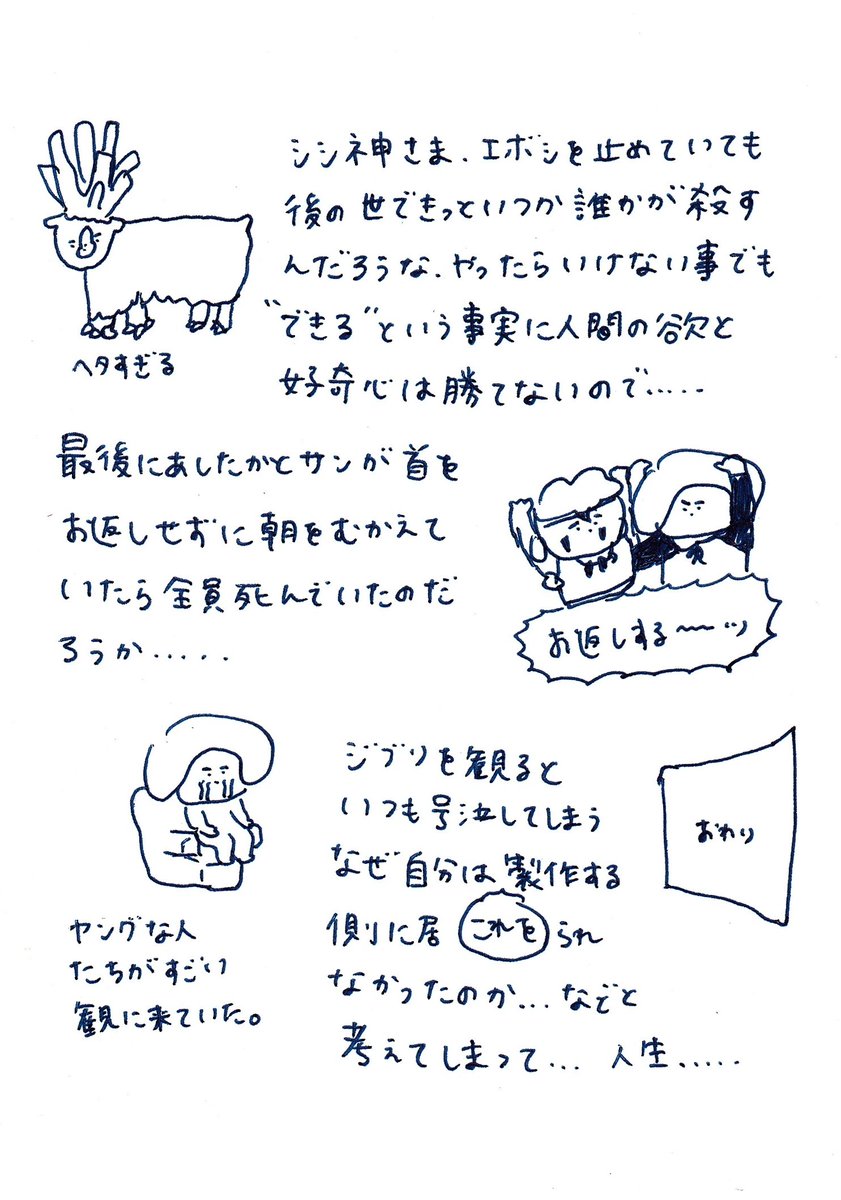 シシ神さま、エボシを止めていても
後の世できっといつか誰かが殺す
んだろうな、やったらいけない事でも
"できる"という事実に人間の欲と
好奇心は勝てないので.....
ヘタすぎる
最後にあしたかとサンが首を
お返しせずに朝をむかえて
いたら全員死んでいたのだ
ろうか.....
お返しする〜〜ッ
ジブリを観ると
いつも号泣してしまう
なぜ自分は製作する
側に居 これを られ
なかったのか...などと
考えてしまって... 人生.....
おわり
ヤングな人
たちがすごい
観に来ていた。